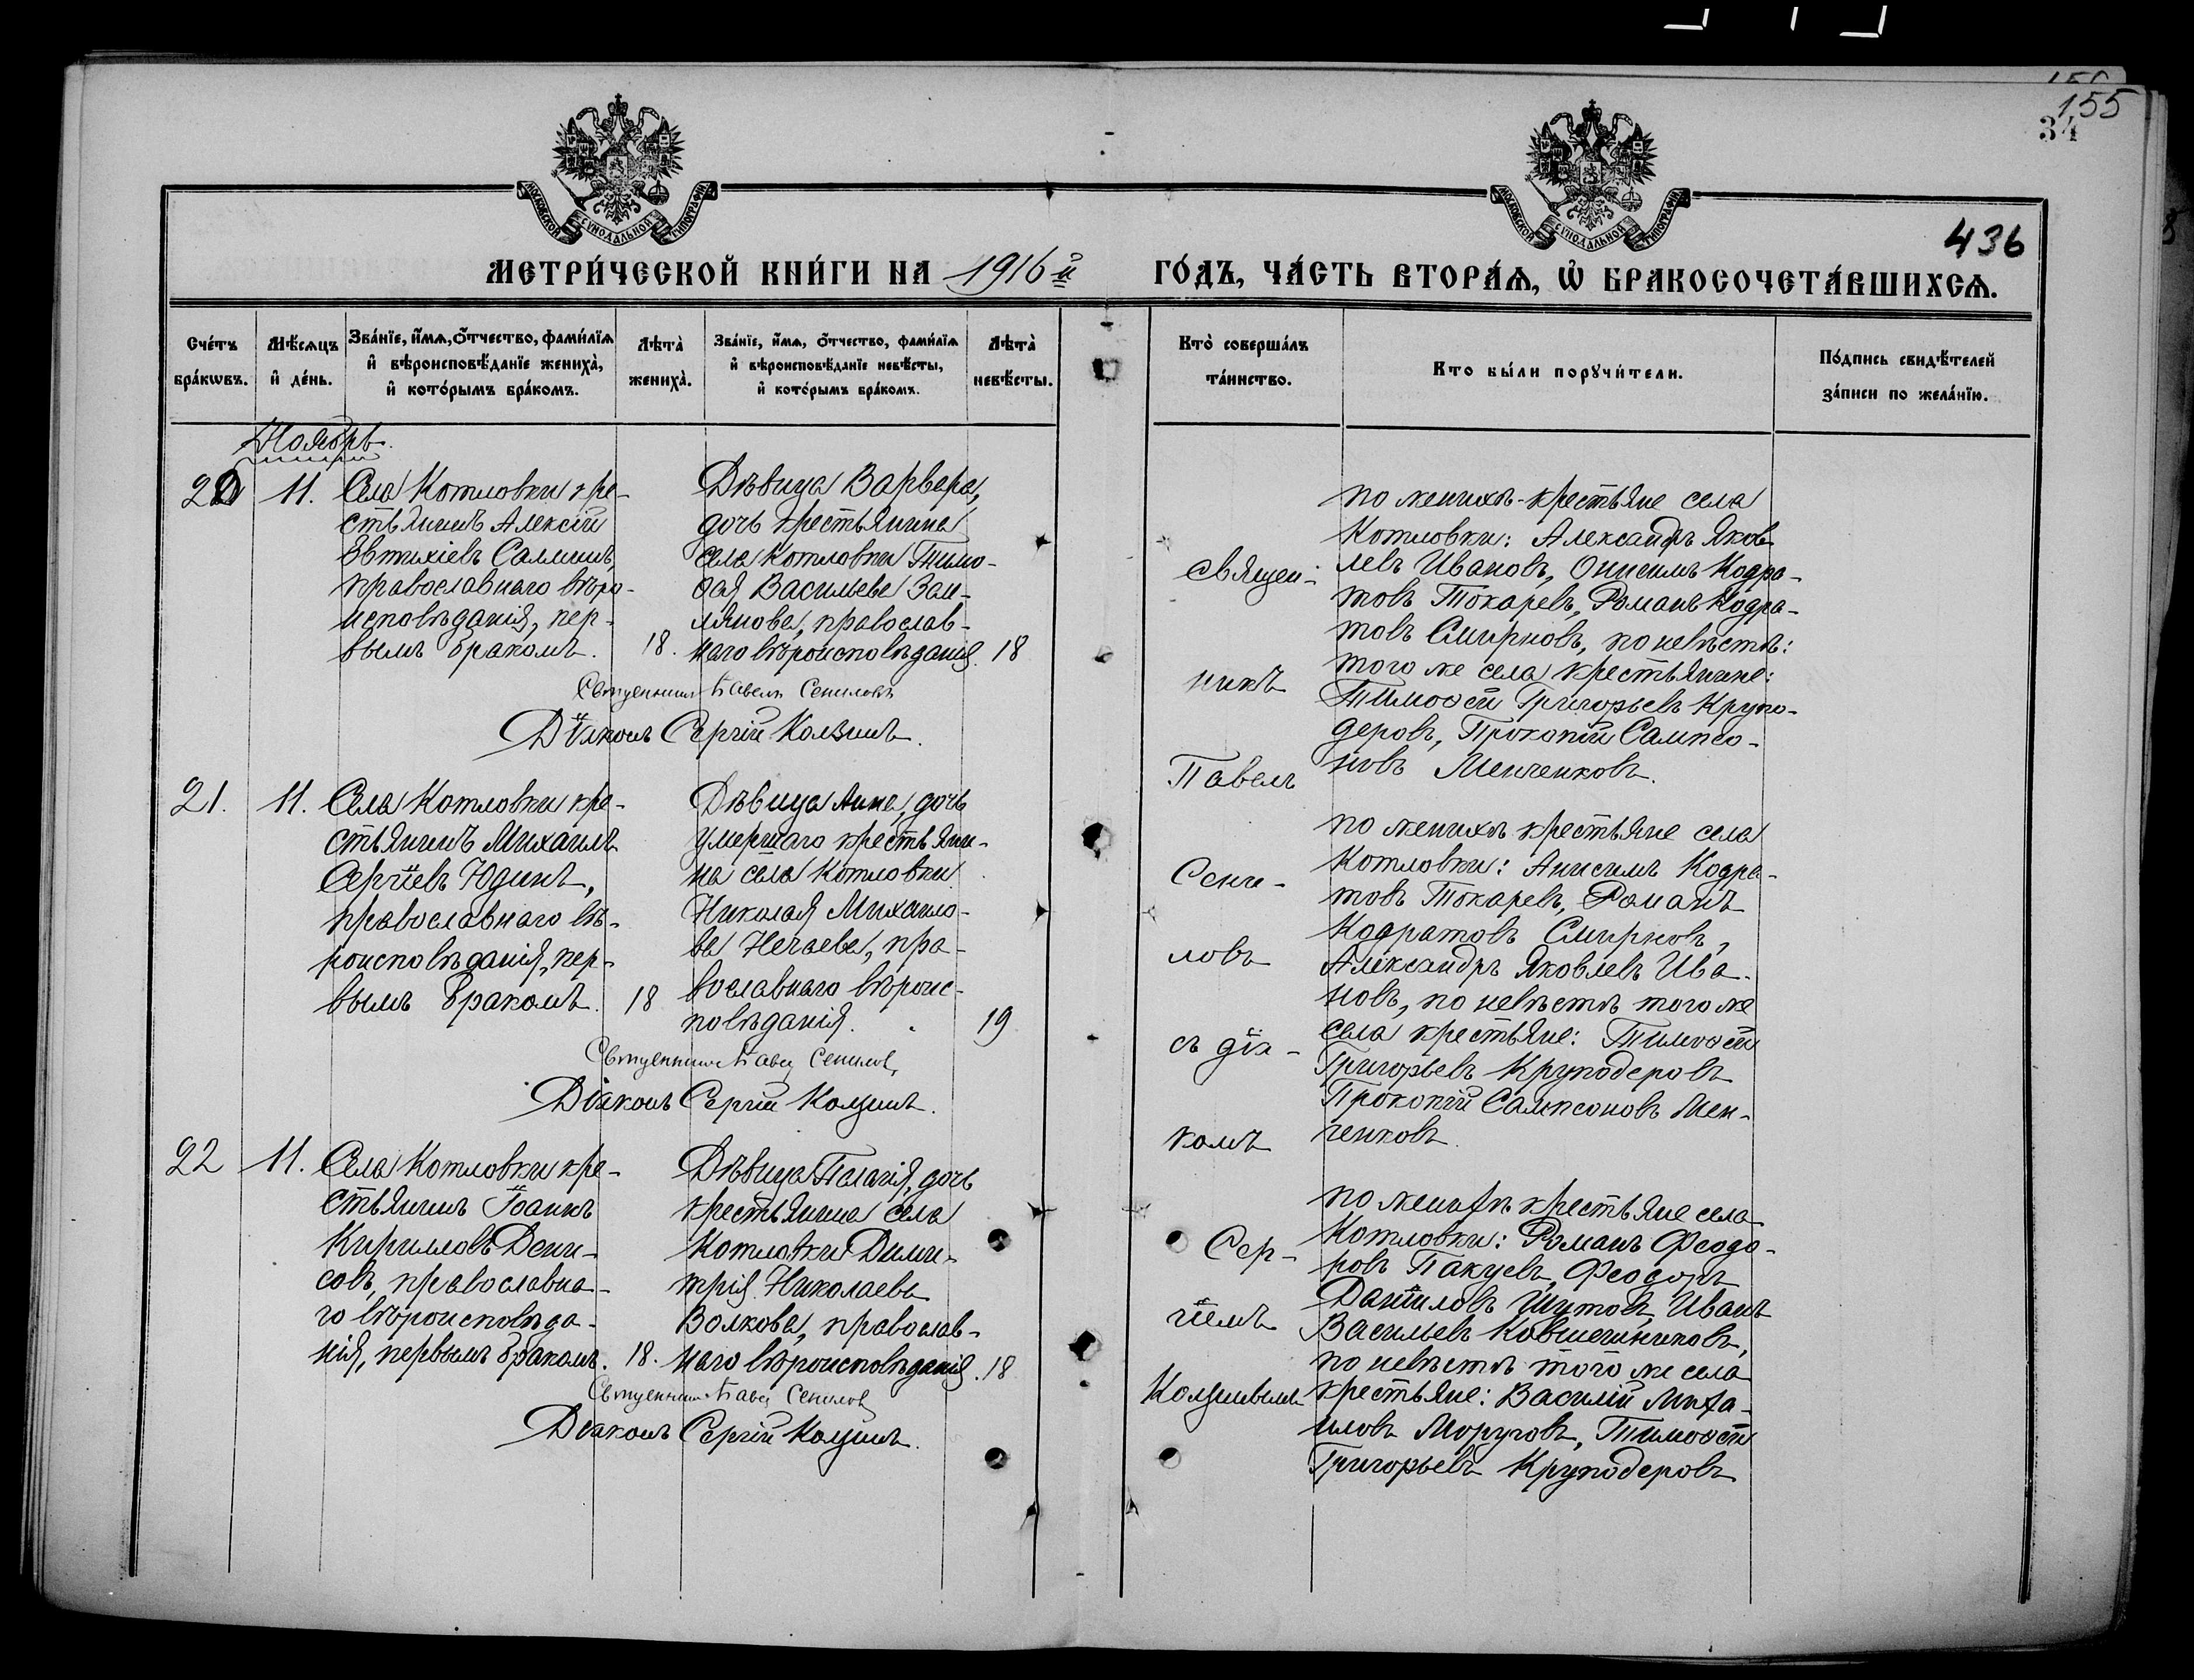 155
34
436
МОСКОВСКОЙ СѴНОДАЛЬНОЙ ТИПОГРАФІИ
МОСКОВСКОЙ СѴНОДАЛЬНОЙ ТИПОГРАФІИ
МЕТРИ́ЧЕСКОЙ КНИ́ГИ НА 1916й ГО́ДЪ, ЧА́СТЬ ВТОРА́Ѧ, Ѡ҆ БРАКОСОЧЕТА́ВШИХСѦ.
Сче́тъ бра́кѡвъ.
Мѣ́сяцъ и҆ де́нь.
Зва́нїе, и҆́мѧ, ѻ҆́тчество, фами́лїѧ
и҆ вѣроисповѣ́данїе жениха̀,
и҆ кото́рымъ бра́комъ.
Лѣта̀ жениха̀.
Зва́нїе, и҆́мѧ, ѻ҆́тчество, фами́лїѧ
и҆ вѣроисповѣ́данїе невѣ́сты,
и҆ кото́рымъ бра́комъ.
Лѣта̀ невѣ́сты.
Кто̀ соверша́лъ та́инство.
Кто бы́ли порꙋчи́тели.
По́дпись свидѣ́телей
за́писи по жела́нїю.
Ноябрь.
20 11.
Села Котловки кре-
стьянинъ Алексій
Евтихіевъ Салминъ,
православнаго вѣро-
исповѣданія, пер-
вымъ бракомъ. 18.
Дѣвица Варвара,
дочь крестьянина
села Котловки Тимо-
ѳея Васильева Зам-
лянова, православ-
наго вѣроисповѣданія. 18
Священникъ Павелъ Сениловъ
Діаконъ Сергій Колзинъ.
по женихѣ - крестьяне села
Котловки: Александръ Яков-
левъ Ивановъ, Онисимъ Кодра-
товъ Токаревъ, Романъ Кодра-
товъ Смирновъ, по невѣстѣ:
того же села крестьяне:
Тимоѳей Григорьевъ Крупо-
деровъ, Прокопій Сампсо-
новъ Менченковъ.
21. 11.
Села Котловки кре-
стьянинъ Михаилъ
Сергіевъ Юдинъ,
православнаго вѣ-
роисповѣданія, пер-
вымъ бракомъ. 18
Дѣвица Анна, дочь
умершаго крестьяни-
на села Котловки
Николая Михаило-
ва Нечаева, пра-
вославнаго вѣроис-
повѣданія. 19
Священникъ Павелъ Сенилов
Діаконъ Сергій Колзинъ.
по женихѣ крестьяне села
Котловки: Анисимъ Кодра-
товъ Токаревъ, Романъ
Кодратовъ Смирновъ,
Александръ Яковлевъ Ива-
новъ, по невѣстѣ того же
села крестьяне: Тимоѳей
Григорьевъ Круподеровъ
Прокопій Сампсоновъ Мен-
ченковъ.
22 11.
Села Котловки кре-
стьянинъ Іоаннъ
Кирилловъ Дени-
совъ, православна-
го вѣроисповѣда-
нія, первымъ бракомъ. 18.
Дѣвица Пелагія, дочь
крестьянина села
Котловки Дими-
трія Николаева
Волкова, православ-
наго вѣроисповѣданія. 18
Священникъ Павелъ Сенилов
Діаконъ Сергій Колзинъ.
по женихѣ крестьяне села
Котловки: Романъ Феодо-
ровъ Пакуевъ, Феодоръ
Даніиловъ Шутовъ, Иванъ
Васильевъ Ковшечниковъ,
по невѣстѣ того же села
крестьяне: Василій Миха-
иловъ Моруговъ, Тимоѳей
Григорьевъ Круподеровъ
Священ-
никъ
Павелъ
Сени-
ловъ
съ діа-
комъ
Сер-
гіемъ
Колзинымъ